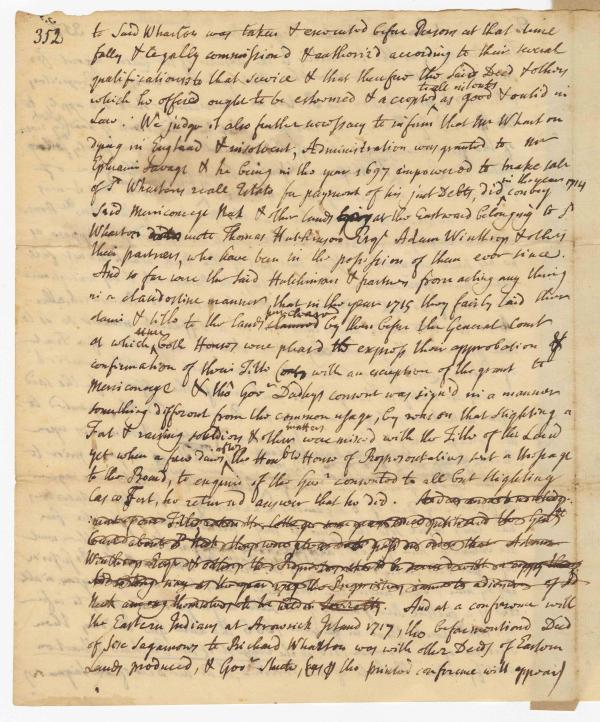 352
to Said Wharton was taken & executed before Persons at that time
fully & legally commission'd & authoriz'd according to their several
qualifications to that service & that therefore the said Deed & others
which he offered ought to be esteemed & accepted to all intents as good & valid in
Law. We judge it also further necessary to inform that Mr Wharton
dying in England & insolvent, Administration was granted to Mr
Ephraim Savage & he being in the year 1697 impowered to make sale
of sd Whartons reall Estate for payment of his just Debts, did in the year 1714 convey
Said Merriconege Neck & other lands lying at the Eastward belonging to sd
Wharton unto Thomas Hutchinson Esqr Adam Winthrop & others
their partners, who have been in the possession of them ever since.
And so far were the said Hutchinson & partners from acting any thing
in a clandestine manner, that in the year 1715 they fairly laid their
claim & title to the lands purchased claimed by them before the General Court
at which time both Houses were pleased to express their approbation &
confirmation of their Title only with an exception of the grant to
Merriconege & tho' Govr Dudleys consent was sign'd in a manner
something different from the common usage, by reason that slighting a
Fort & raising soldiers & other matters were mix'd with the Title of the Land
yet when a few days after the Honble House of Representatives sent a message
to the Board, to enquire if the Govr consented to all but slighting
Casco Fort, he returned answer that he did.
Winthrop Esqr & others the Proprietors
And
Neck among themselves And at a conference with
the Eastern Indians at Arowsick Island 1717, the beforementioned Deed
of Six Sagamores to Richard Wharton was with other Deeds of Eastern
Lands produced, & Govr Shute, (as by the printed conference will appear)